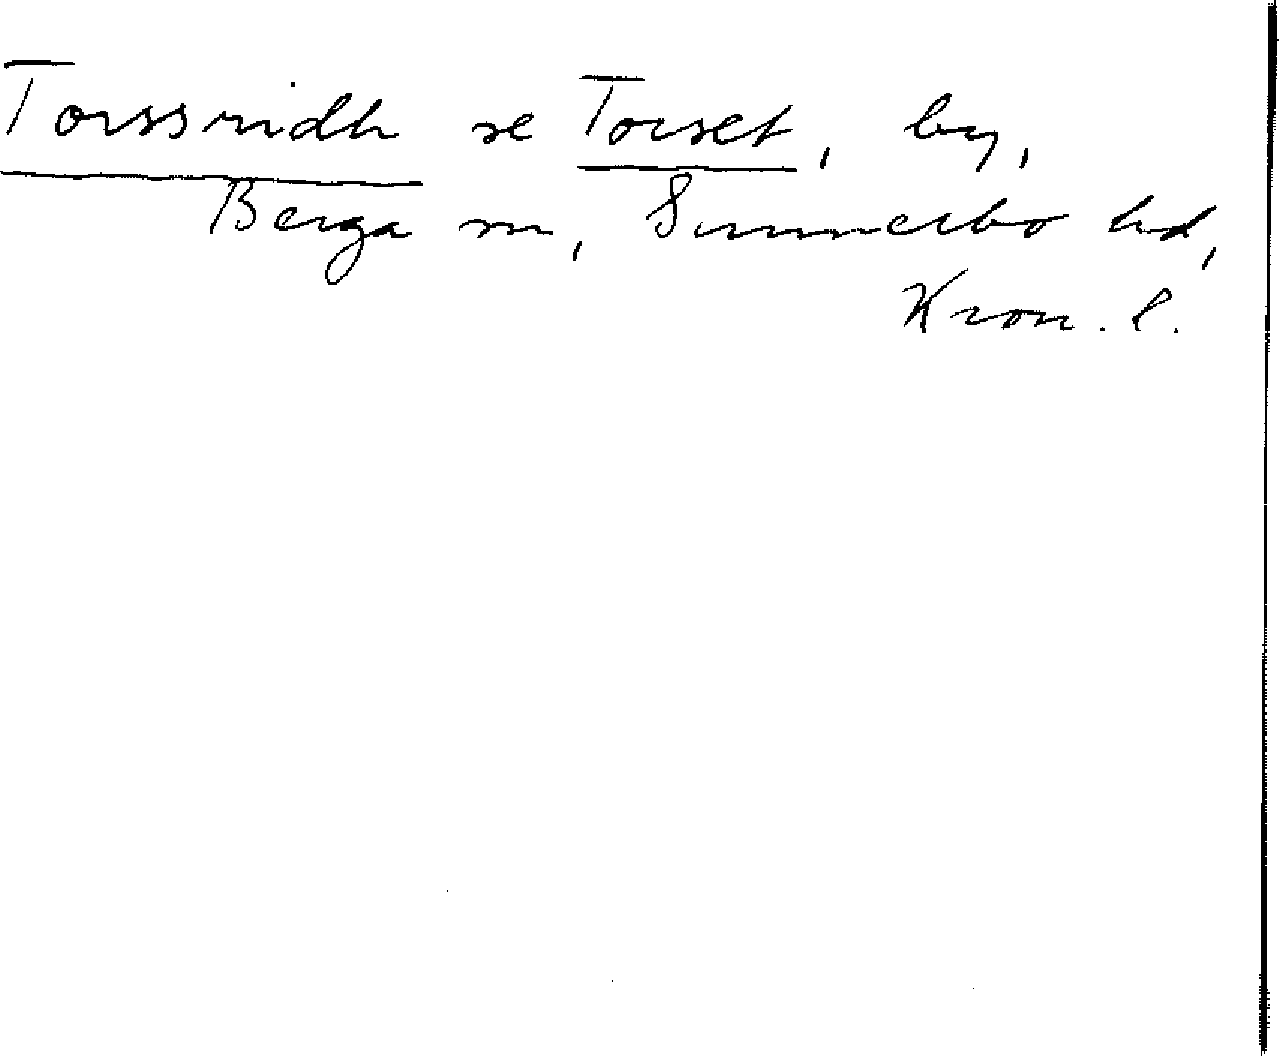 Torssridh se Torset, by,
Berga sn, Sunnerbo hd,
Kron. l.